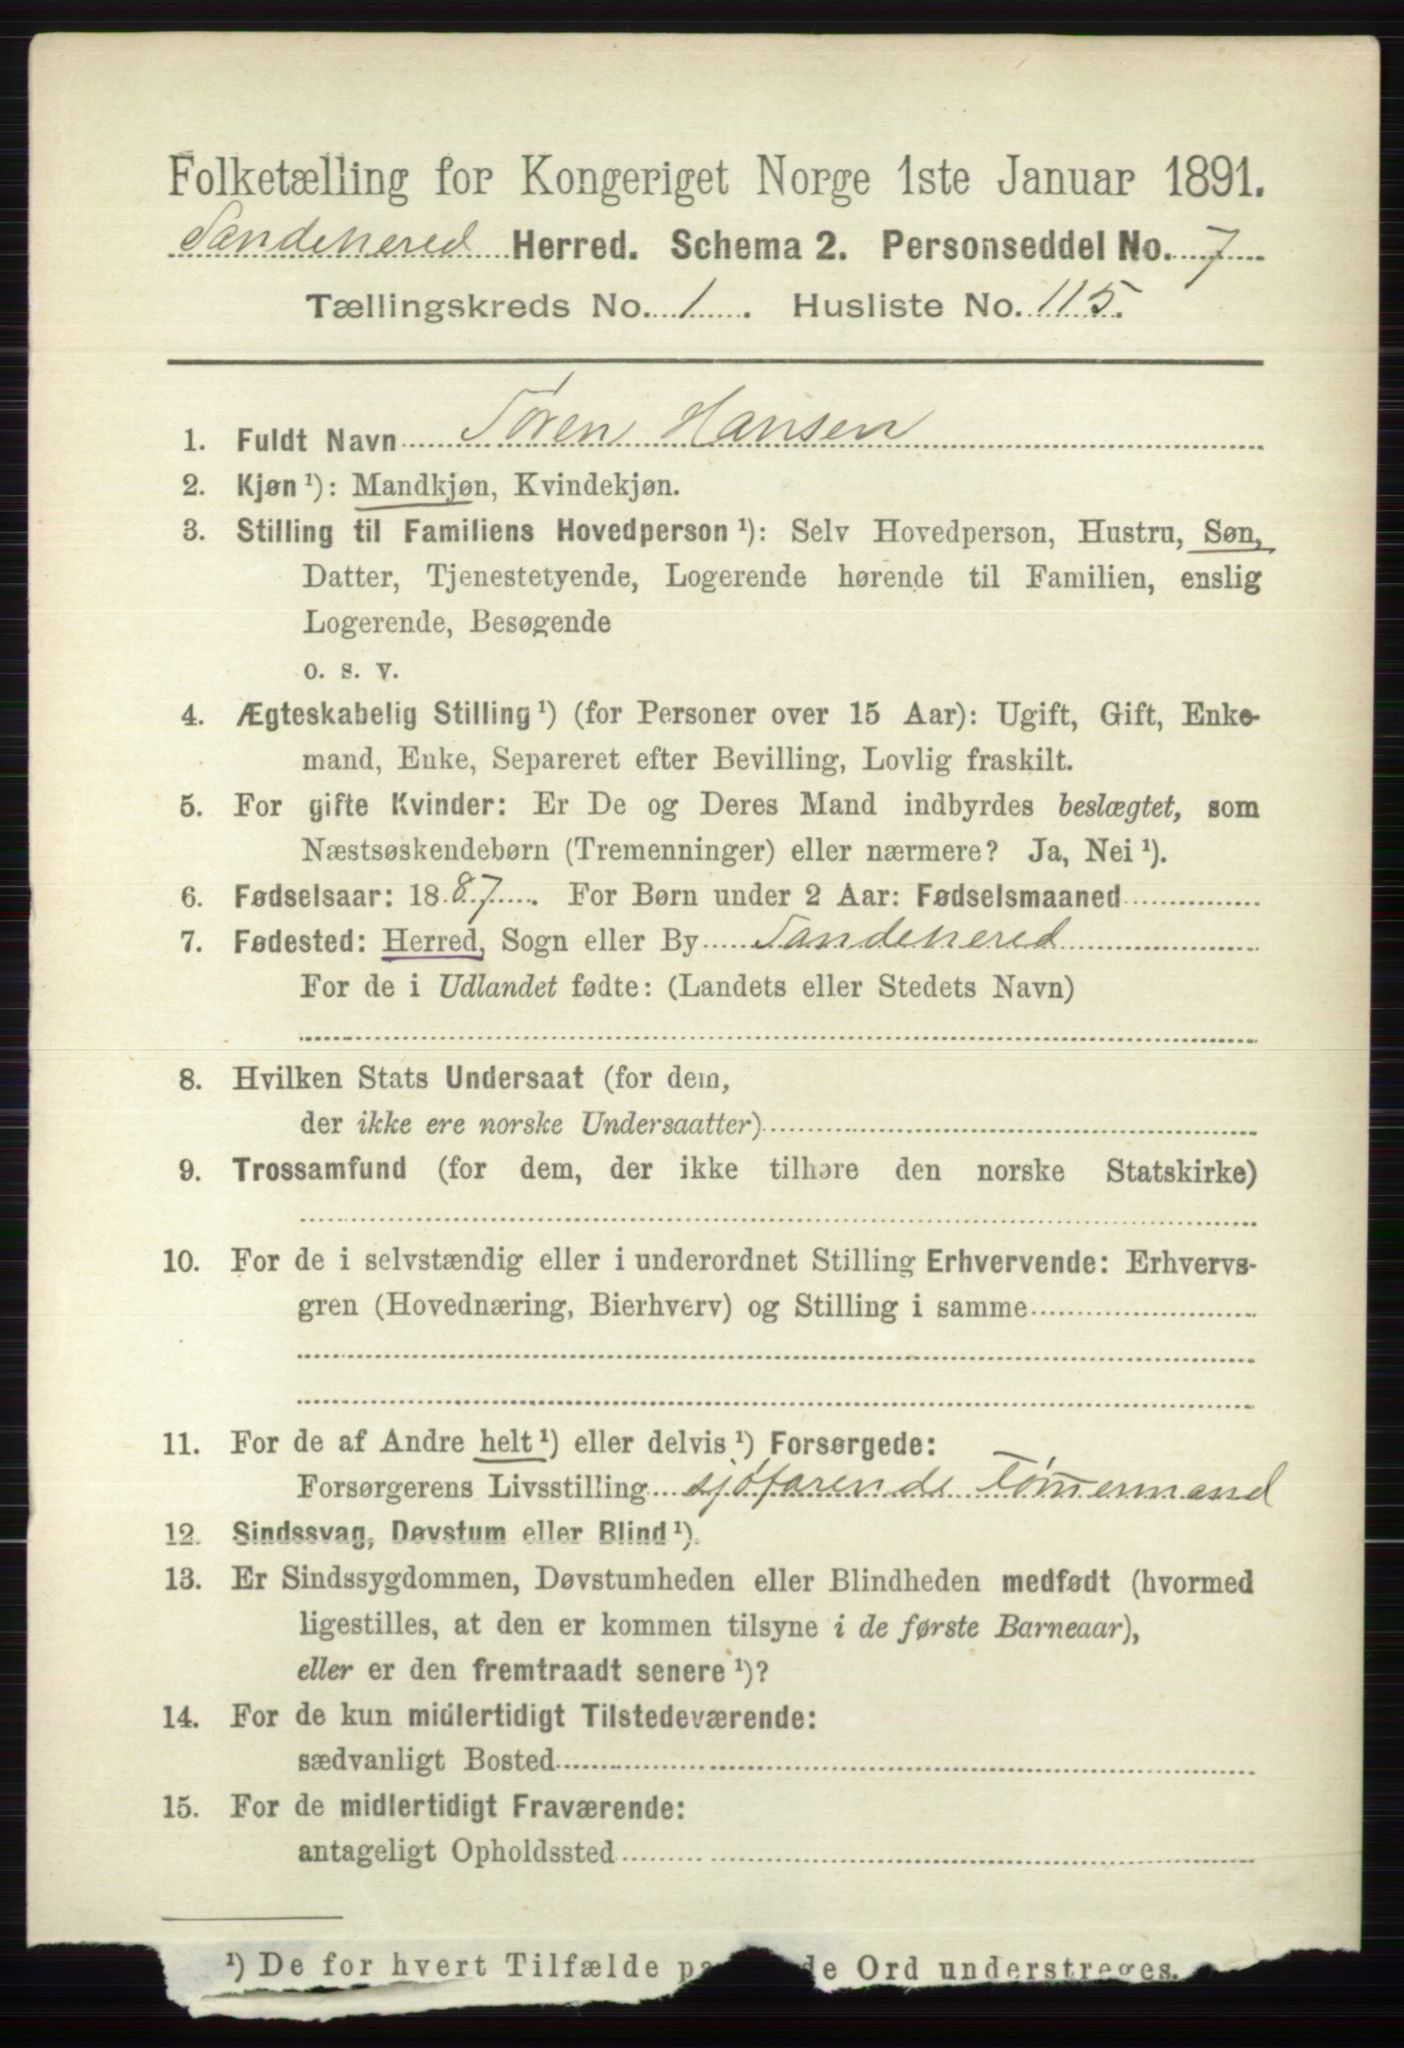 Folketælling for Kongeriget Norge 1ste Januar 1891.
Sandeherred Herred. Schema 2. Personseddel No. 7
Tællingskreds No. 1. Husliste No. 115.
1. Fuldt Navn Søren Hansen
2. Kjøn¹): Mandkjøn, Kvindekjøn.
3. Stilling til Familiens Hovedperson¹): Selv Hovedperson, Hustru, Søn,
Datter, Tjenestetyende, Logerende hørende til Familien, enslig
Logerende, Besøgende
o. s. v.
4. Ægteskabelig Stilling¹) (for Personer over 15 Aar): Ugift, Gift, Enke-
mand, Enke, Separeret efter Bevilling, Lovlig fraskilt.
5. For gifte Kvinder: Er De og Deres Mand indbyrdes beslægtet, som
Næstsøskendebørn (Tremenninger) eller nærmere? Ja, Nei¹).
6. Fødselsaar: 1887. For Børn under 2 Aar: Fødselsmaaned
7. Fødested: Herred, Sogn eller By Sandeherred
For de i Udlandet fødte: (Landets eller Stedets Navn)
8. Hvilken Stats Undersaat (for dem,
der ikke ere norske Undersaatter)
9. Trossamfund (for dem, der ikke tilhøre den norske Statskirke)
10. For de i selvstændig eller i underordnet Stilling Erhvervende: Erhvervs-
gren (Hovednæring, Bierhverv) og Stilling i samme
11. For de af Andre helt¹) eller delvis¹) Forsørgede:
Forsørgerens Livsstilling sjøfarende Tømermand
12. Sindssvag, Døvstum eller Blind¹).
13. Er Sindssygdommen, Døvstumheden eller Blindheden medfødt (hvormed
ligestilles, at den er kommen tilsyne i de første Barneaar),
eller er den fremtraadt senere¹)?
14. For de kun midlertidigt Tilstedeværende:
sædvanligt Bosted
15. For de midlertidigt Fraværende:
antageligt Opholdssted
¹) De for hvert Tilfælde pa de Ord understreges.